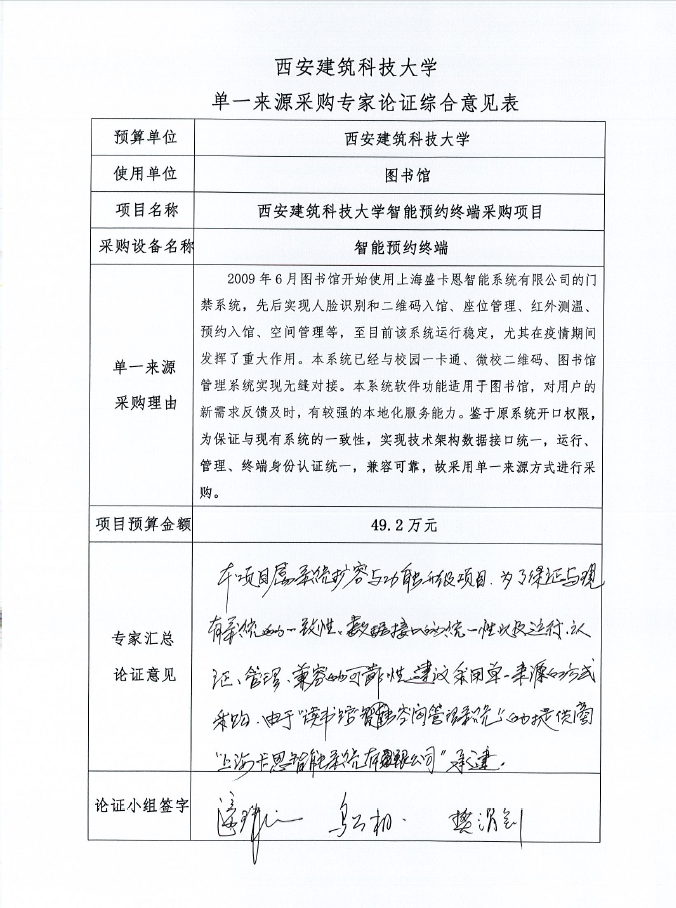 西安建筑科技大学
单一来源采购专家论证综合意见表
预算单位 西安建筑科技大学
使用单位 图书馆
项目名称 西安建筑科技大学智能预约终端采购项目
采购设备名称 智能预约终端
单一来源
采购理由
2009年6月图书馆开始使用上海盛卡恩智能系统有限公司的门
禁系统，先后实现人脸识别和二维码入馆、座位管理、红外测温、
预约入馆、空间管理等，至目前该系统运行稳定，尤其在疫情期间
发挥了重大作用。本系统已经与校园一卡通、微校二维码、图书馆
管理系统实现无缝对接。本系统软件功能适用于图书馆，对用户的
新需求反馈及时，有较强的本地化服务能力。鉴于原系统开口权限，
为保证与现有系统的一致性，实现技术架构数据接口统一，运行、
管理、终端身份认证统一，兼容可靠，故采用单一来源方式进行采
购。
项目预算金额 49.2万元
专家汇总
论证意见
本项目属系统扩容与功能升级项目，为了保证与现
有系统的一致性、数据接口的统一性以及运行、认
证、管理、兼容的可靠性，建议采用单一来源的方式
采购，由于“读书馆智能空间管理系统”的提供商
“上海卡恩智能系统有限公司”承建。
论证小组签字